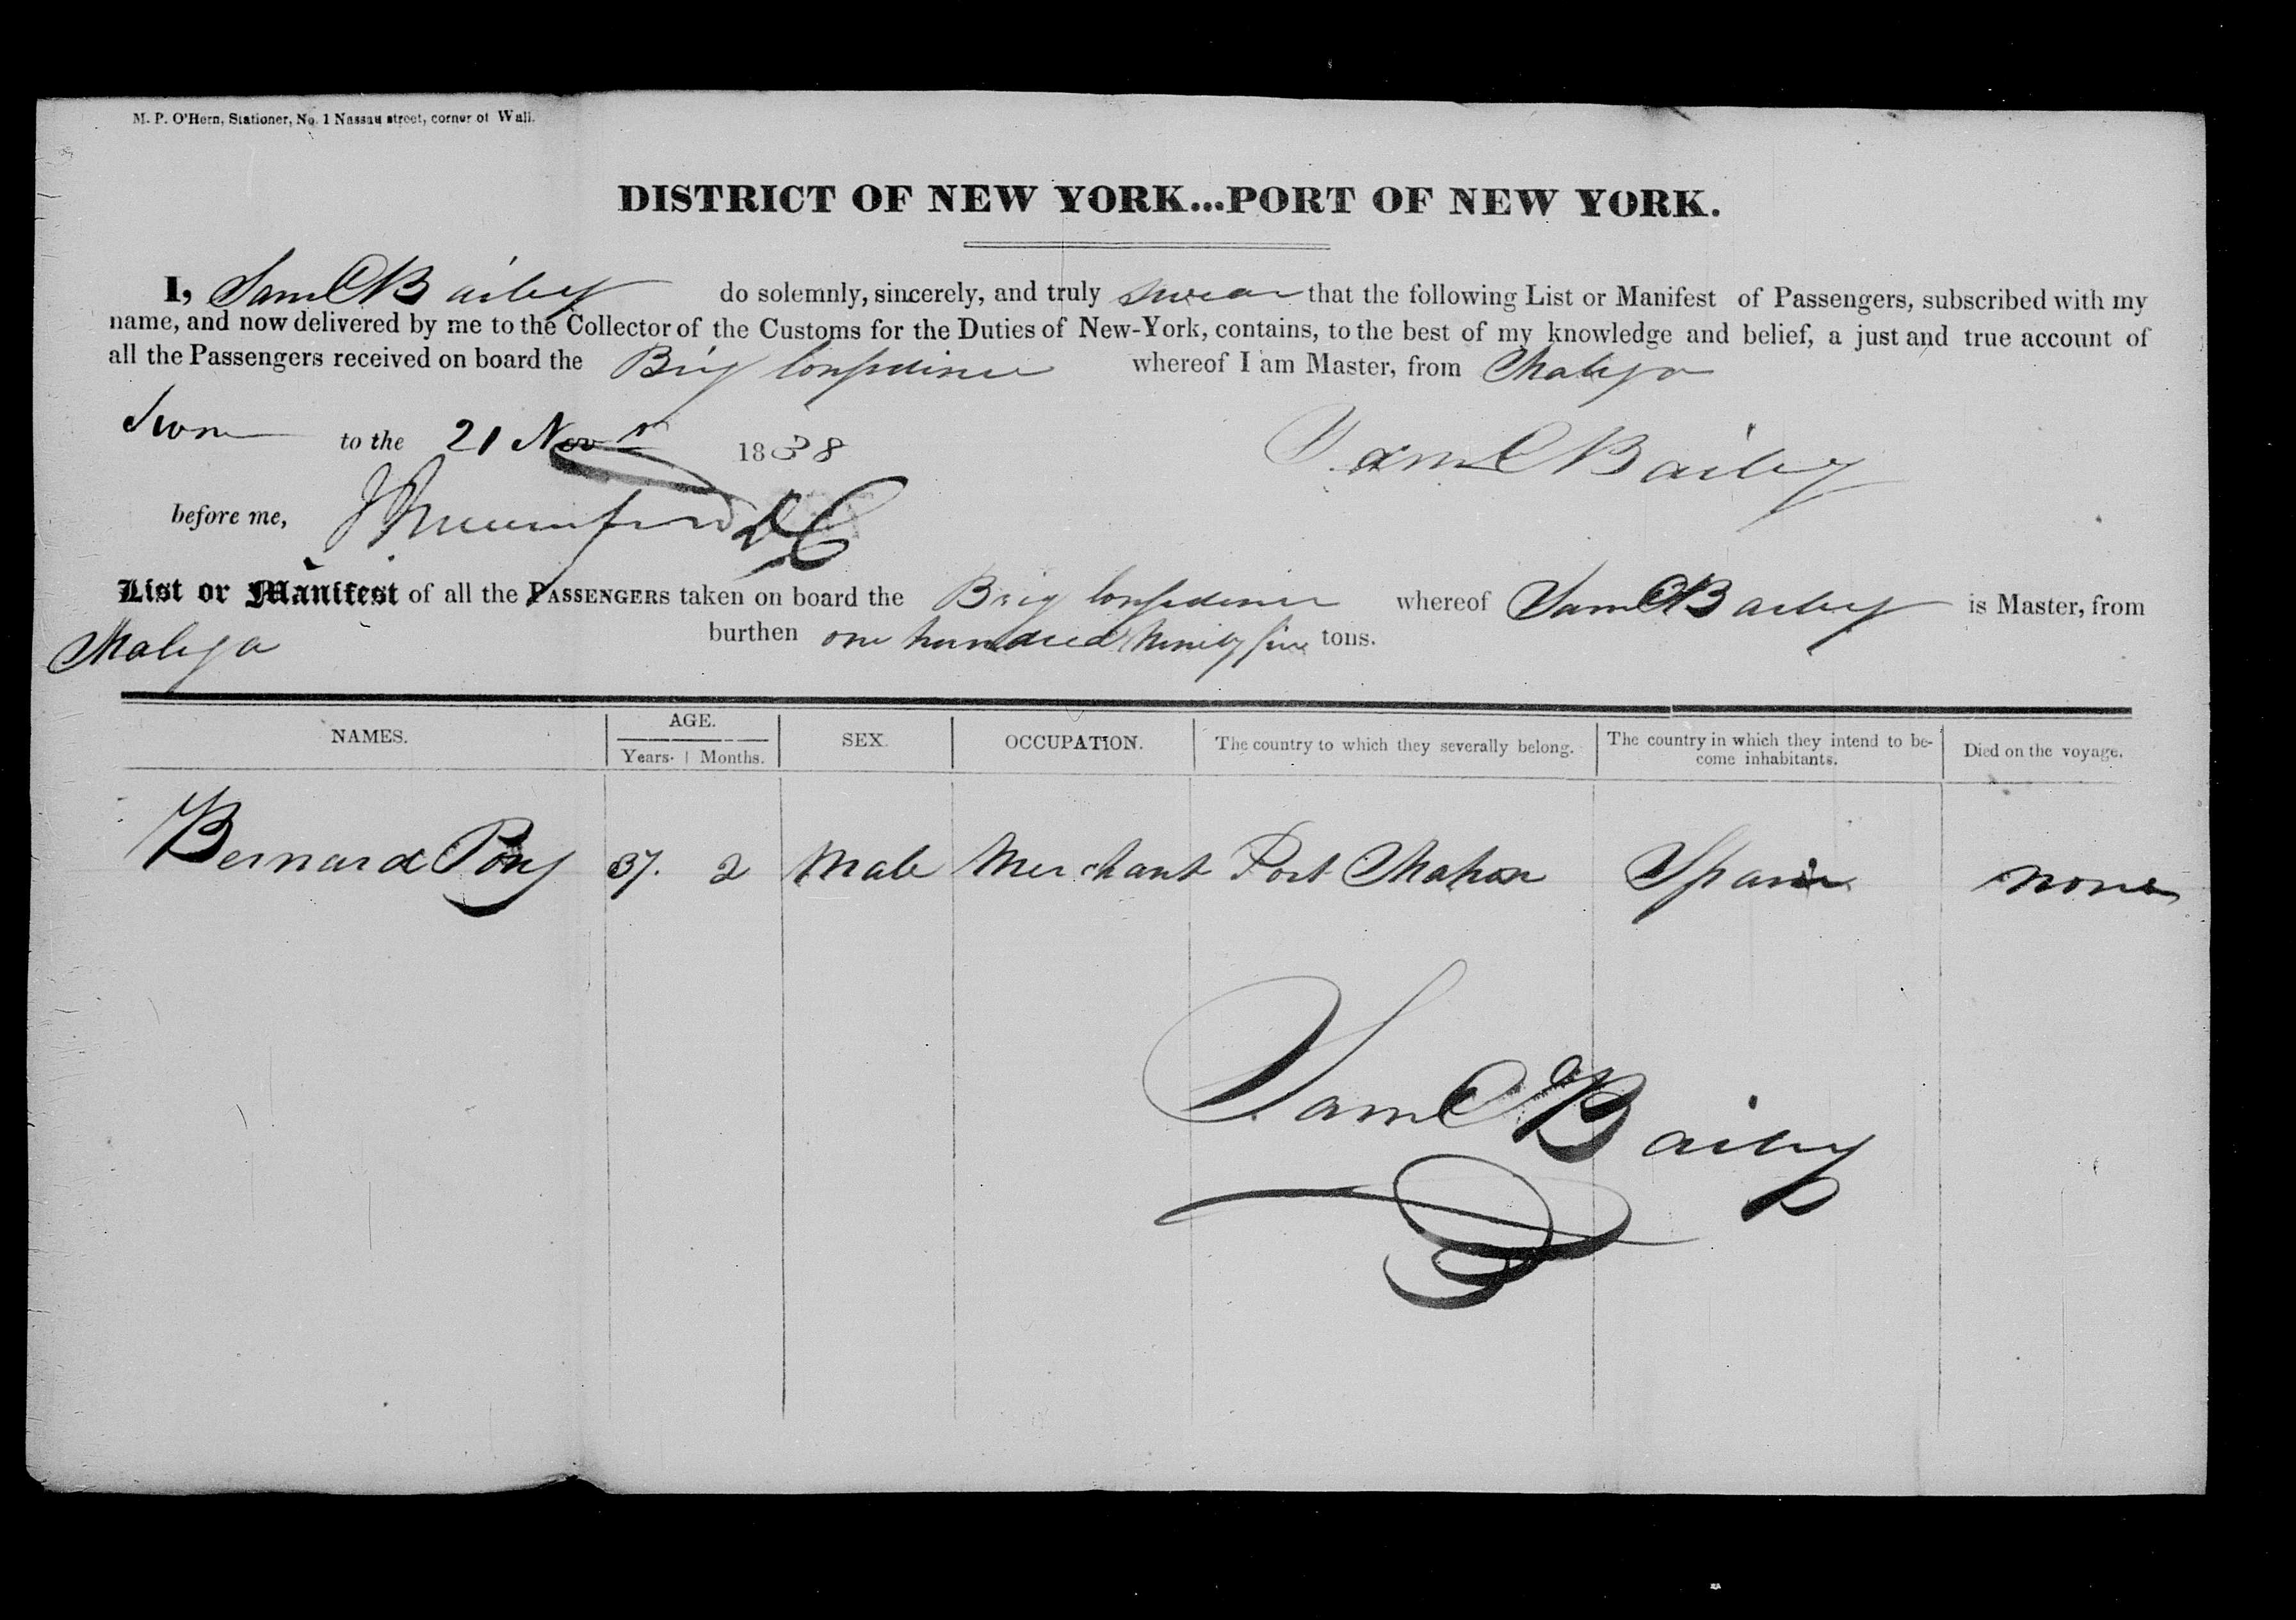 M. P. O'Hern, Stationer, No. 1 Nassau street, corner of Wall.
DISTRICT OF NEW YORK...PORT OF NEW YORK.
I, Saml C Bailey do solemnly, sincerely, and truly swear that the following List or Manifest of Passengers, subscribed with my
name, and now delivered by me to the Collector of the Customs for the Duties of New-York, contains, to the best of my knowledge and belief, a just and true account of
all the Passengers received on board the Brig Confidence whereof I am Master, from Malaga
Sworn to the 21 Novr 1838 Saml C Bailey
before me, DC
List or Manifest of all the PASSENGERS taken on board the Brig Confidence whereof Saml C Bailey is Master, from
Malaga burthen one hundred Ninety five tons.
NAMES. AGE. Years. Months. SEX. OCCUPATION. The country to which they severally belong. The country in which they intend to be-
come inhabitants. Died on the voyage.
Bernard 37. 2 Male Merchant Port Mahon Spain none
Saml C Bailey